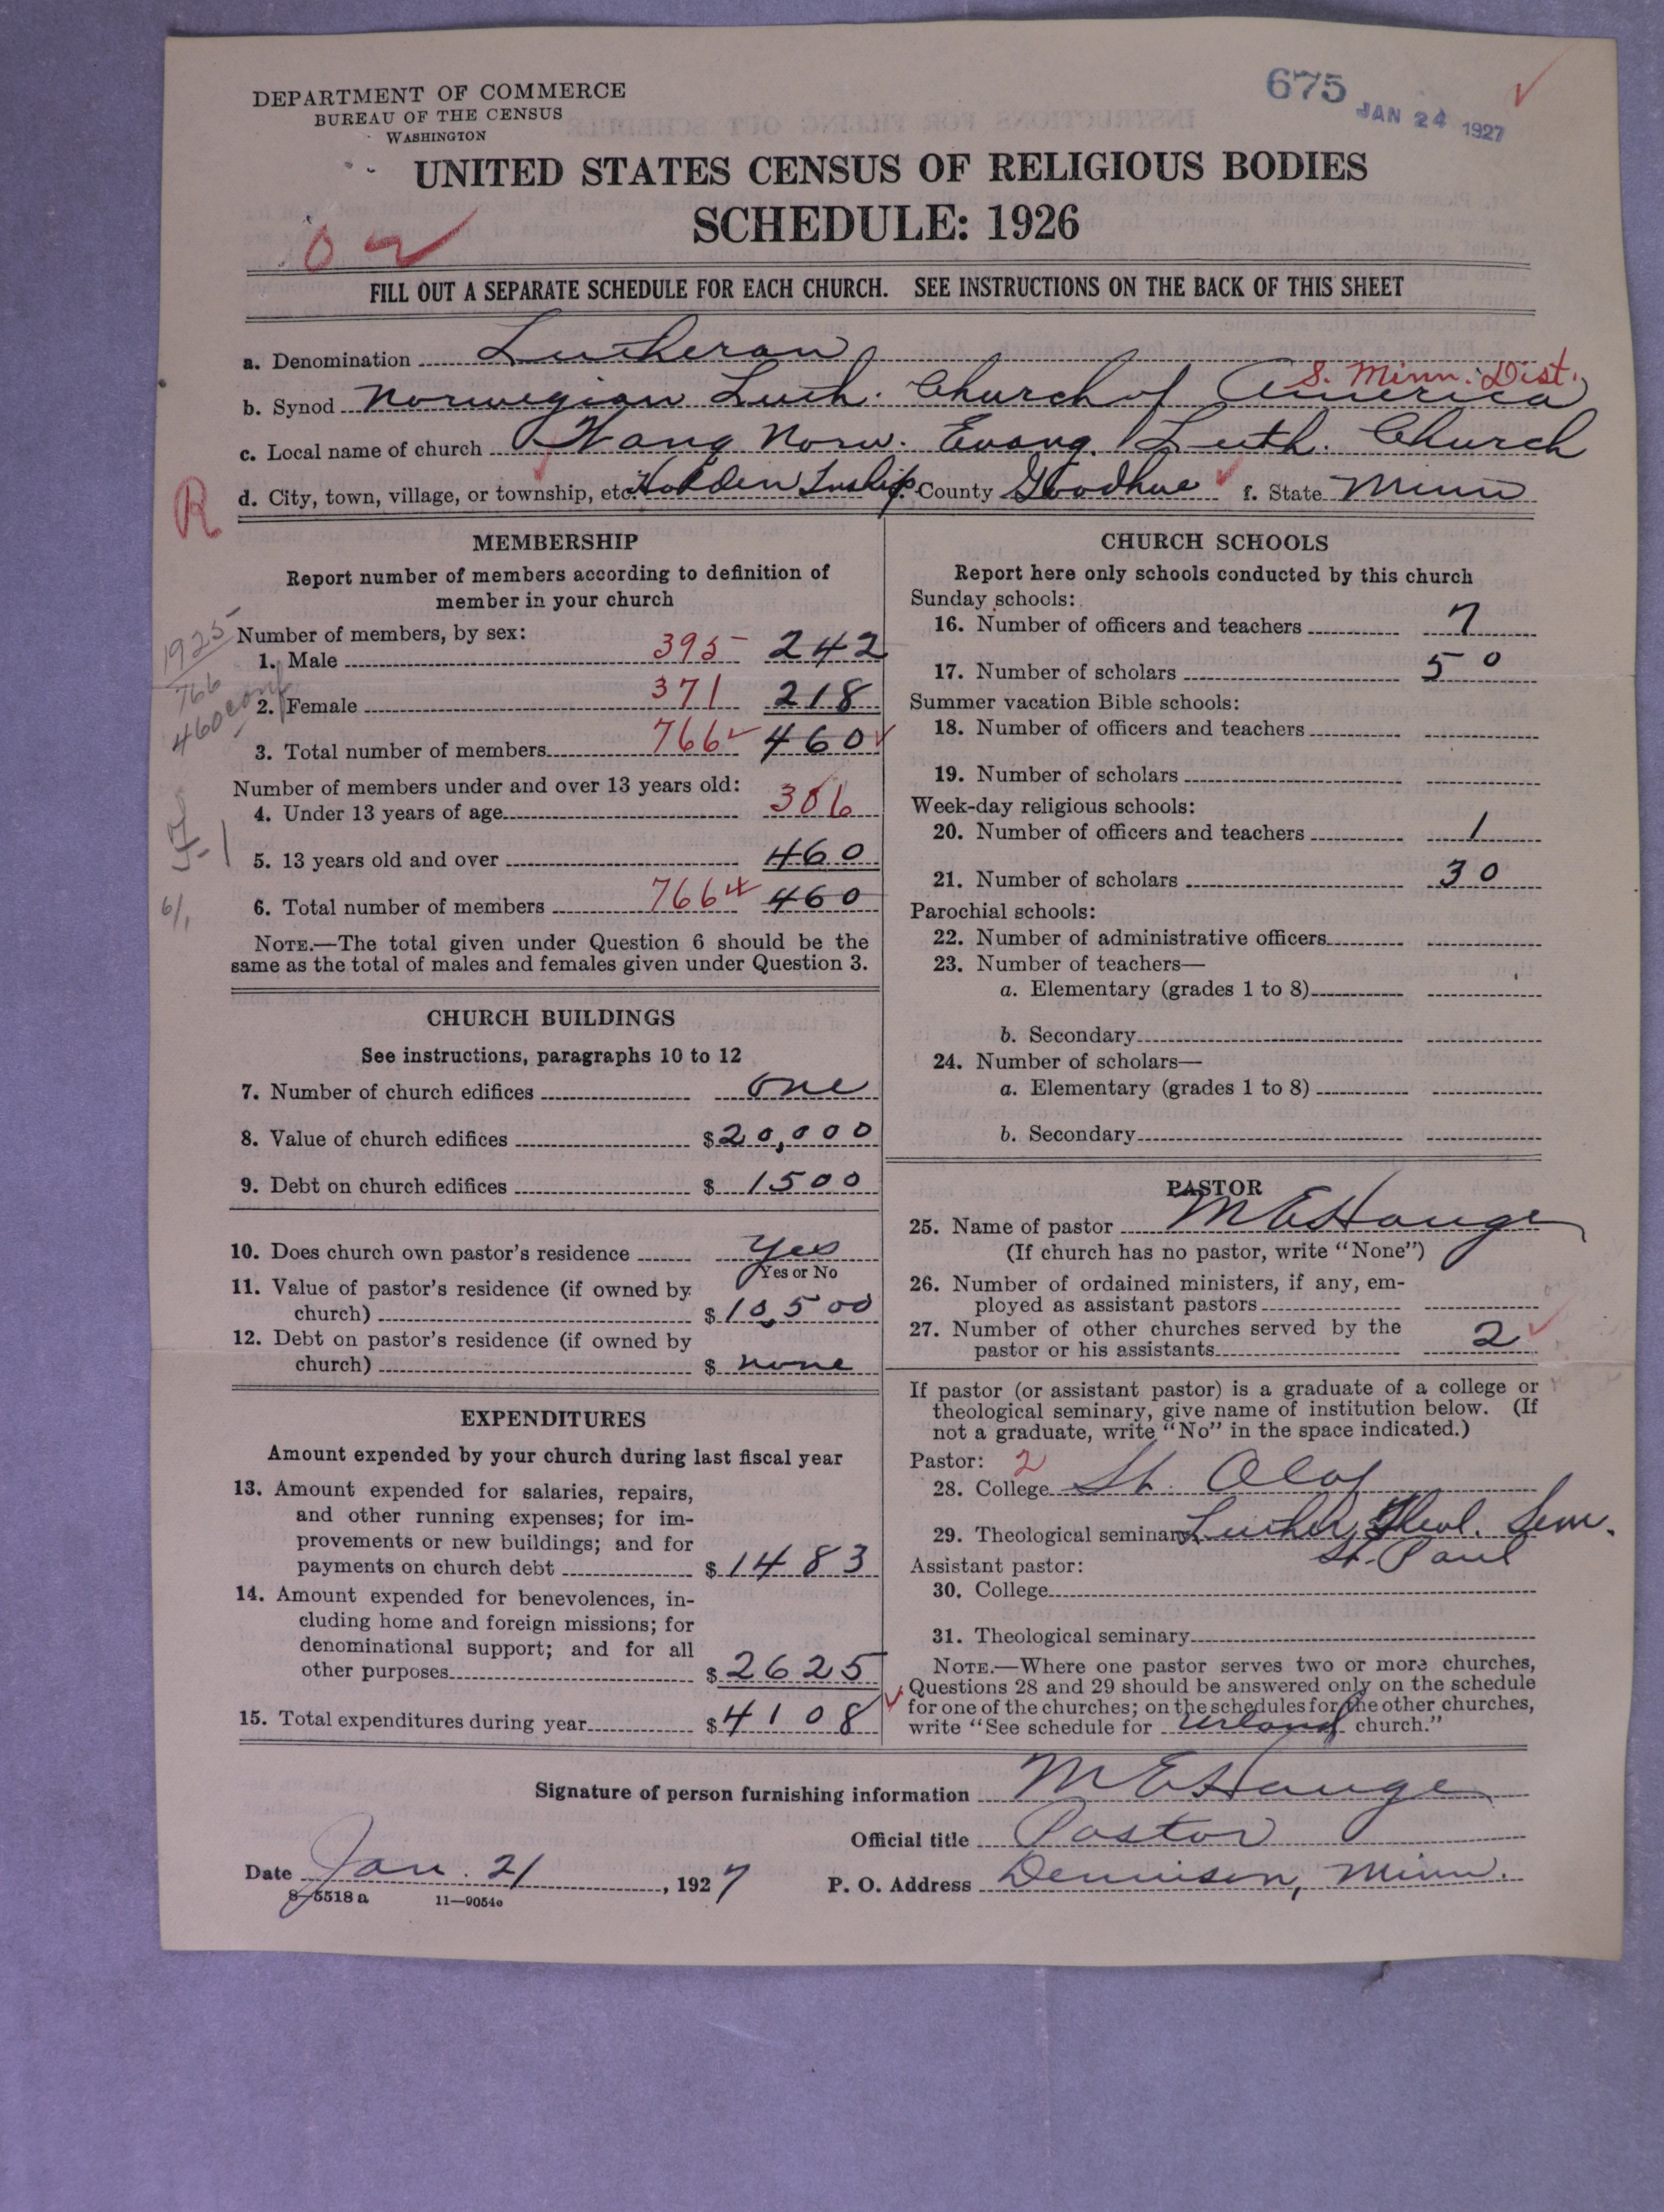 DEPARTMENT OF COMMERCE
BUREAU OF THE CENSUS
WASHINGTON
675
JAN 24 1927
UNITED STATES CENSUS OF RELIGIOUS BODIES
SCHEDULE: 1926
FILL OUT A SEPARATE SCHEDULE FOR EACH CHURCH. SEE INSTRUCTIONS ON THE BACK OF THIS SHEET
a. Denomination Lutheran
S. Minn. Dist.
b. Synod Norwegian Luth. Church of America
c. Local name of church Vang Norw. Evang. Luth. Church
R
d. City, town, village, or township, etc. Holden Twship County Goodhue f. State Minn
MEMBERSHIP
Report number of members according to definition of
member in your church
1925
766
460 conf
Number of members, by sex:
1. Male 395 242
2. Female 371 218
3. Total number of members 766 460
Number of members under and over 13 years old:
4. Under 13 years of age 306
5. 13 years old and over 460
6. Total number of members 766 460
6/1
NOTE.—The total given under Question 6 should be the
same as the total of males and females given under Question 3.
CHURCH BUILDINGS
See instructions, paragraphs 10 to 12
7. Number of church edifices one
8. Value of church edifices $ 20,000
9. Debt on church edifices $ 1500
10. Does church own pastor's residence Yes
Yes or No
11. Value of pastor's residence (if owned by
church) $ 10,500
12. Debt on pastor's residence (if owned by
church) $ none
EXPENDITURES
Amount expended by your church during last fiscal year
13. Amount expended for salaries, repairs,
and other running expenses; for im-
provements or new buildings; and for
payments on church debt $ 1483
14. Amount expended for benevolences, in-
cluding home and foreign missions; for
denominational support; and for all
other purposes $ 2625
15. Total expenditures during year $ 4108
CHURCH SCHOOLS
Report here only schools conducted by this church
Sunday schools:
16. Number of officers and teachers 7
17. Number of scholars 50
Summer vacation Bible schools:
18. Number of officers and teachers
19. Number of scholars
Week-day religious schools:
20. Number of officers and teachers 1
21. Number of scholars 30
Parochial schools:
22. Number of administrative officers
23. Number of teachers—
a. Elementary (grades 1 to 8)
b. Secondary
24. Number of scholars—
a. Elementary (grades 1 to 8)
b. Secondary
PASTOR
25. Name of pastor M E Hauge
(If church has no pastor, write "None")
26. Number of ordained ministers, if any, em-
ployed as assistant pastors
27. Number of other churches served by the
pastor or his assistants 2
If pastor (or assistant pastor) is a graduate of a college or
theological seminary, give name of institution below. (If
not a graduate, write "No" in the space indicated.)
Pastor: 2
28. College St. Olaf
29. Theological seminary Luther Theol. Sem.
St. Paul
Assistant pastor:
30. College
31. Theological seminary
NOTE.—Where one pastor serves two or more churches,
Questions 28 and 29 should be answered only on the schedule
for one of the churches; on the schedules for the other churches,
write "See schedule for Urland church."
Signature of person furnishing information M E Hauge
Official title Pastor
Date Jan. 21, 1927
P. O. Address Dennison, Minn.
8-5518 a 11—9054c